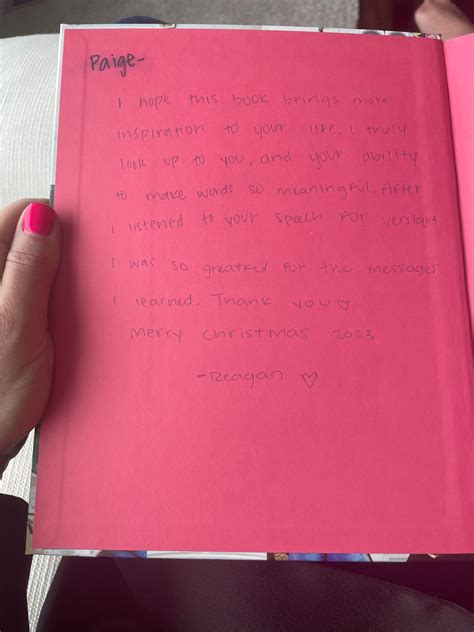 Paige-
I hope this book brings more
inspiration to your life. I truly
look up to you, and your ability
to make words so meaningful. After
I listened to your speech for
I was so greatful for the messages
I learned. Thank you ♡
Merry Christmas 2023
-Reagan ♡